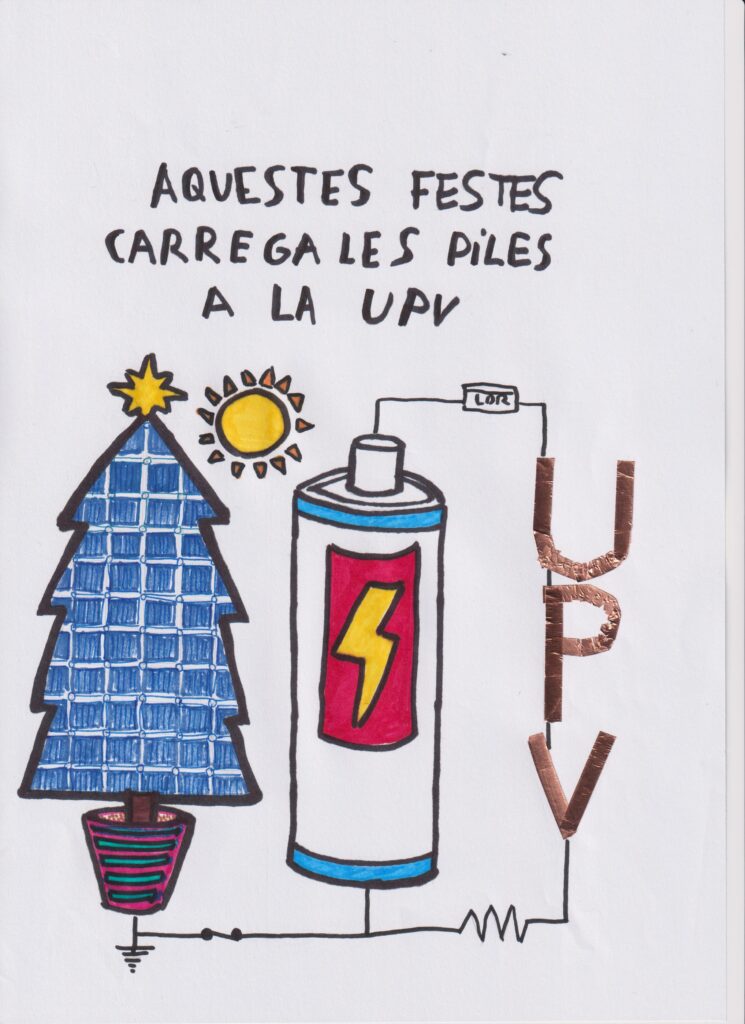 AQUESTES FESTES
CARREGA LES PILES
A LA UPV
LDR
U
P
V